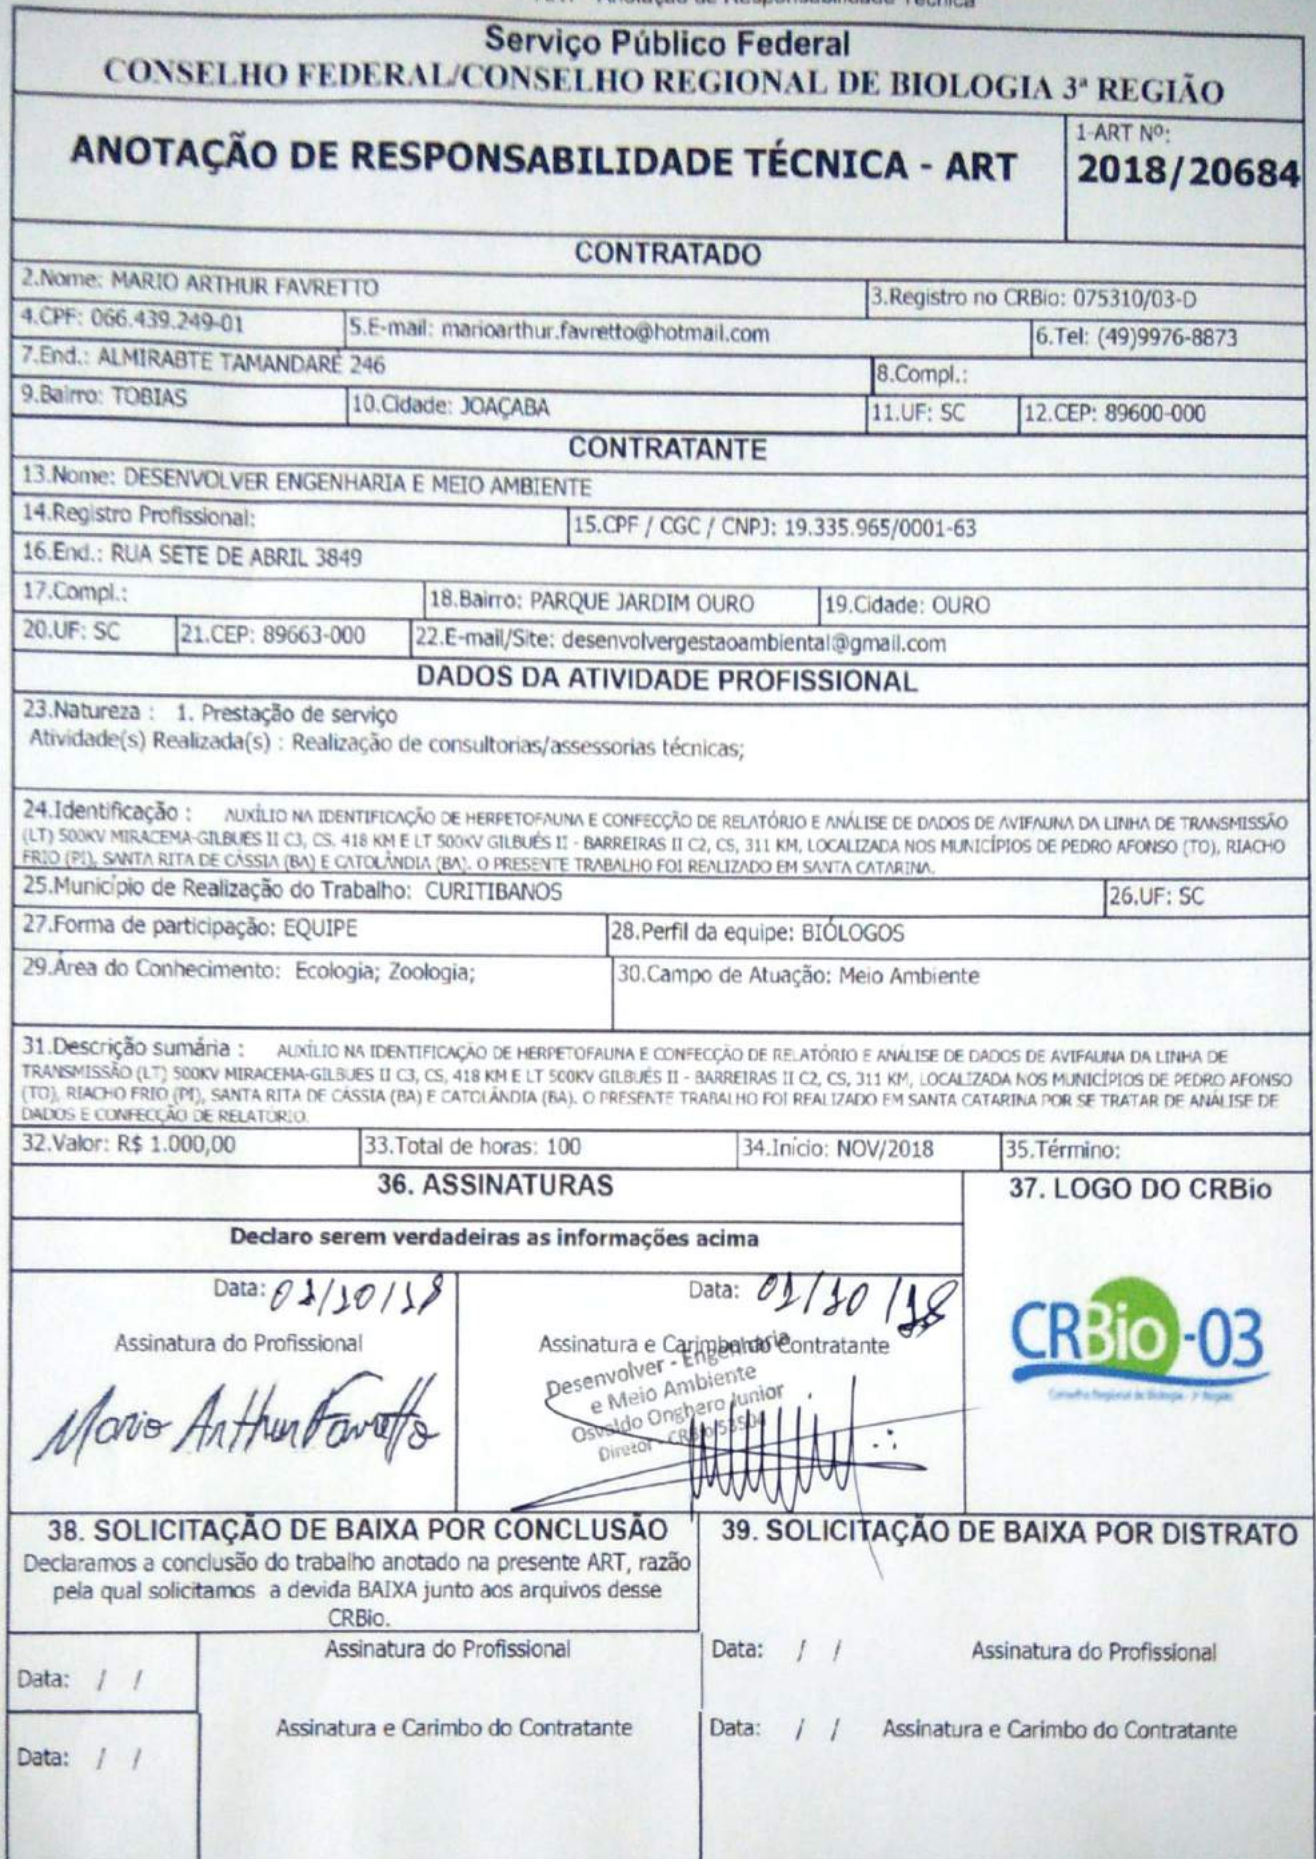 Serviço Público Federal
CONSELHO FEDERAL/CONSELHO REGIONAL DE BIOLOGIA 3ª REGIÃO
ANOTAÇÃO DE RESPONSABILIDADE TÉCNICA - ART
1-ART Nº:
2018/20684
CONTRATADO
2.Nome: MARIO ARTHUR FAVRETTO
3.Registro no CRBio: 075310/03-D
4.CPF: 066.439.249-01
5.E-mail: marioarthur.favretto@hotmail.com
6.Tel: (49)9976-8873
7.End.: ALMIRABTE TAMANDARÉ 246
8.Compl.:
9.Bairro: TOBIAS
10.Cidade: JOAÇABA
11.UF: SC
12.CEP: 89600-000
CONTRATANTE
13.Nome: DESENVOLVER ENGENHARIA E MEIO AMBIENTE
14.Registro Profissional:
15.CPF / CGC / CNPJ: 19.335.965/0001-63
16.End.: RUA SETE DE ABRIL 3849
17.Compl.:
18.Bairro: PARQUE JARDIM OURO
19.Cidade: OURO
20.UF: SC
21.CEP: 89663-000
22.E-mail/Site: desenvolvergestaoambiental@gmail.com
DADOS DA ATIVIDADE PROFISSIONAL
23.Natureza : 1. Prestação de serviço
Atividade(s) Realizada(s) : Realização de consultorias/assessorias técnicas;
24.Identificação : AUXÍLIO NA IDENTIFICAÇÃO DE HERPETOFAUNA E CONFECÇÃO DE RELATÓRIO E ANÁLISE DE DADOS DE AVIFAUNA DA LINHA DE TRANSMISSÃO
(LT) 500KV MIRACEMA-GILBUÉS II C3, CS, 418 KM E LT 500KV GILBUÉS II - BARREIRAS II C2, CS, 311 KM, LOCALIZADA NOS MUNICÍPIOS DE PEDRO AFONSO (TO), RIACHO
FRIO (PI), SANTA RITA DE CÁSSIA (BA) E CATOLÂNDIA (BA). O PRESENTE TRABALHO FOI REALIZADO EM SANTA CATARINA.
25.Município de Realização do Trabalho: CURITIBANOS
26.UF: SC
27.Forma de participação: EQUIPE
28.Perfil da equipe: BIÓLOGOS
29.Área do Conhecimento: Ecologia; Zoologia;
30.Campo de Atuação: Meio Ambiente
31.Descrição sumária : AUXÍLIO NA IDENTIFICAÇÃO DE HERPETOFAUNA E CONFECÇÃO DE RELATÓRIO E ANÁLISE DE DADOS DE AVIFAUNA DA LINHA DE
TRANSMISSÃO (LT) 500KV MIRACEMA-GILBUES II C3, CS, 418 KM E LT 500KV GILBUÉS II - BARREIRAS II C2, CS, 311 KM, LOCALIZADA NOS MUNICÍPIOS DE PEDRO AFONSO
(TO), RIACHO FRIO (PI), SANTA RITA DE CÁSSIA (BA) E CATOLÂNDIA (BA). O PRESENTE TRABALHO FOI REALIZADO EM SANTA CATARINA POR SE TRATAR DE ANÁLISE DE
DADOS E CONFECÇÃO DE RELATÓRIO.
32.Valor: R$ 1.000,00
33.Total de horas: 100
34.Início: NOV/2018
35.Término:
36. ASSINATURAS
37. LOGO DO CRBio
Declaro serem verdadeiras as informações acima
Data: 01/10/18
Data: 01/10/18
Assinatura do Profissional
Assinatura e Carimbo do Contratante
Desenvolver - Engenharia
e Meio Ambiente
Osvaldo Onghero Junior
Diretor - CRBio 53504
Mario Arthur Favretto
CRBio-03
Conselho Regional de Biologia - 3ª Região
38. SOLICITAÇÃO DE BAIXA POR CONCLUSÃO
39. SOLICITAÇÃO DE BAIXA POR DISTRATO
Declaramos a conclusão do trabalho anotado na presente ART, razão
pela qual solicitamos a devida BAIXA junto aos arquivos desse
CRBio.
Data: / /
Assinatura do Profissional
Data: / / Assinatura do Profissional
Data: / /
Assinatura e Carimbo do Contratante
Data: / / Assinatura e Carimbo do Contratante